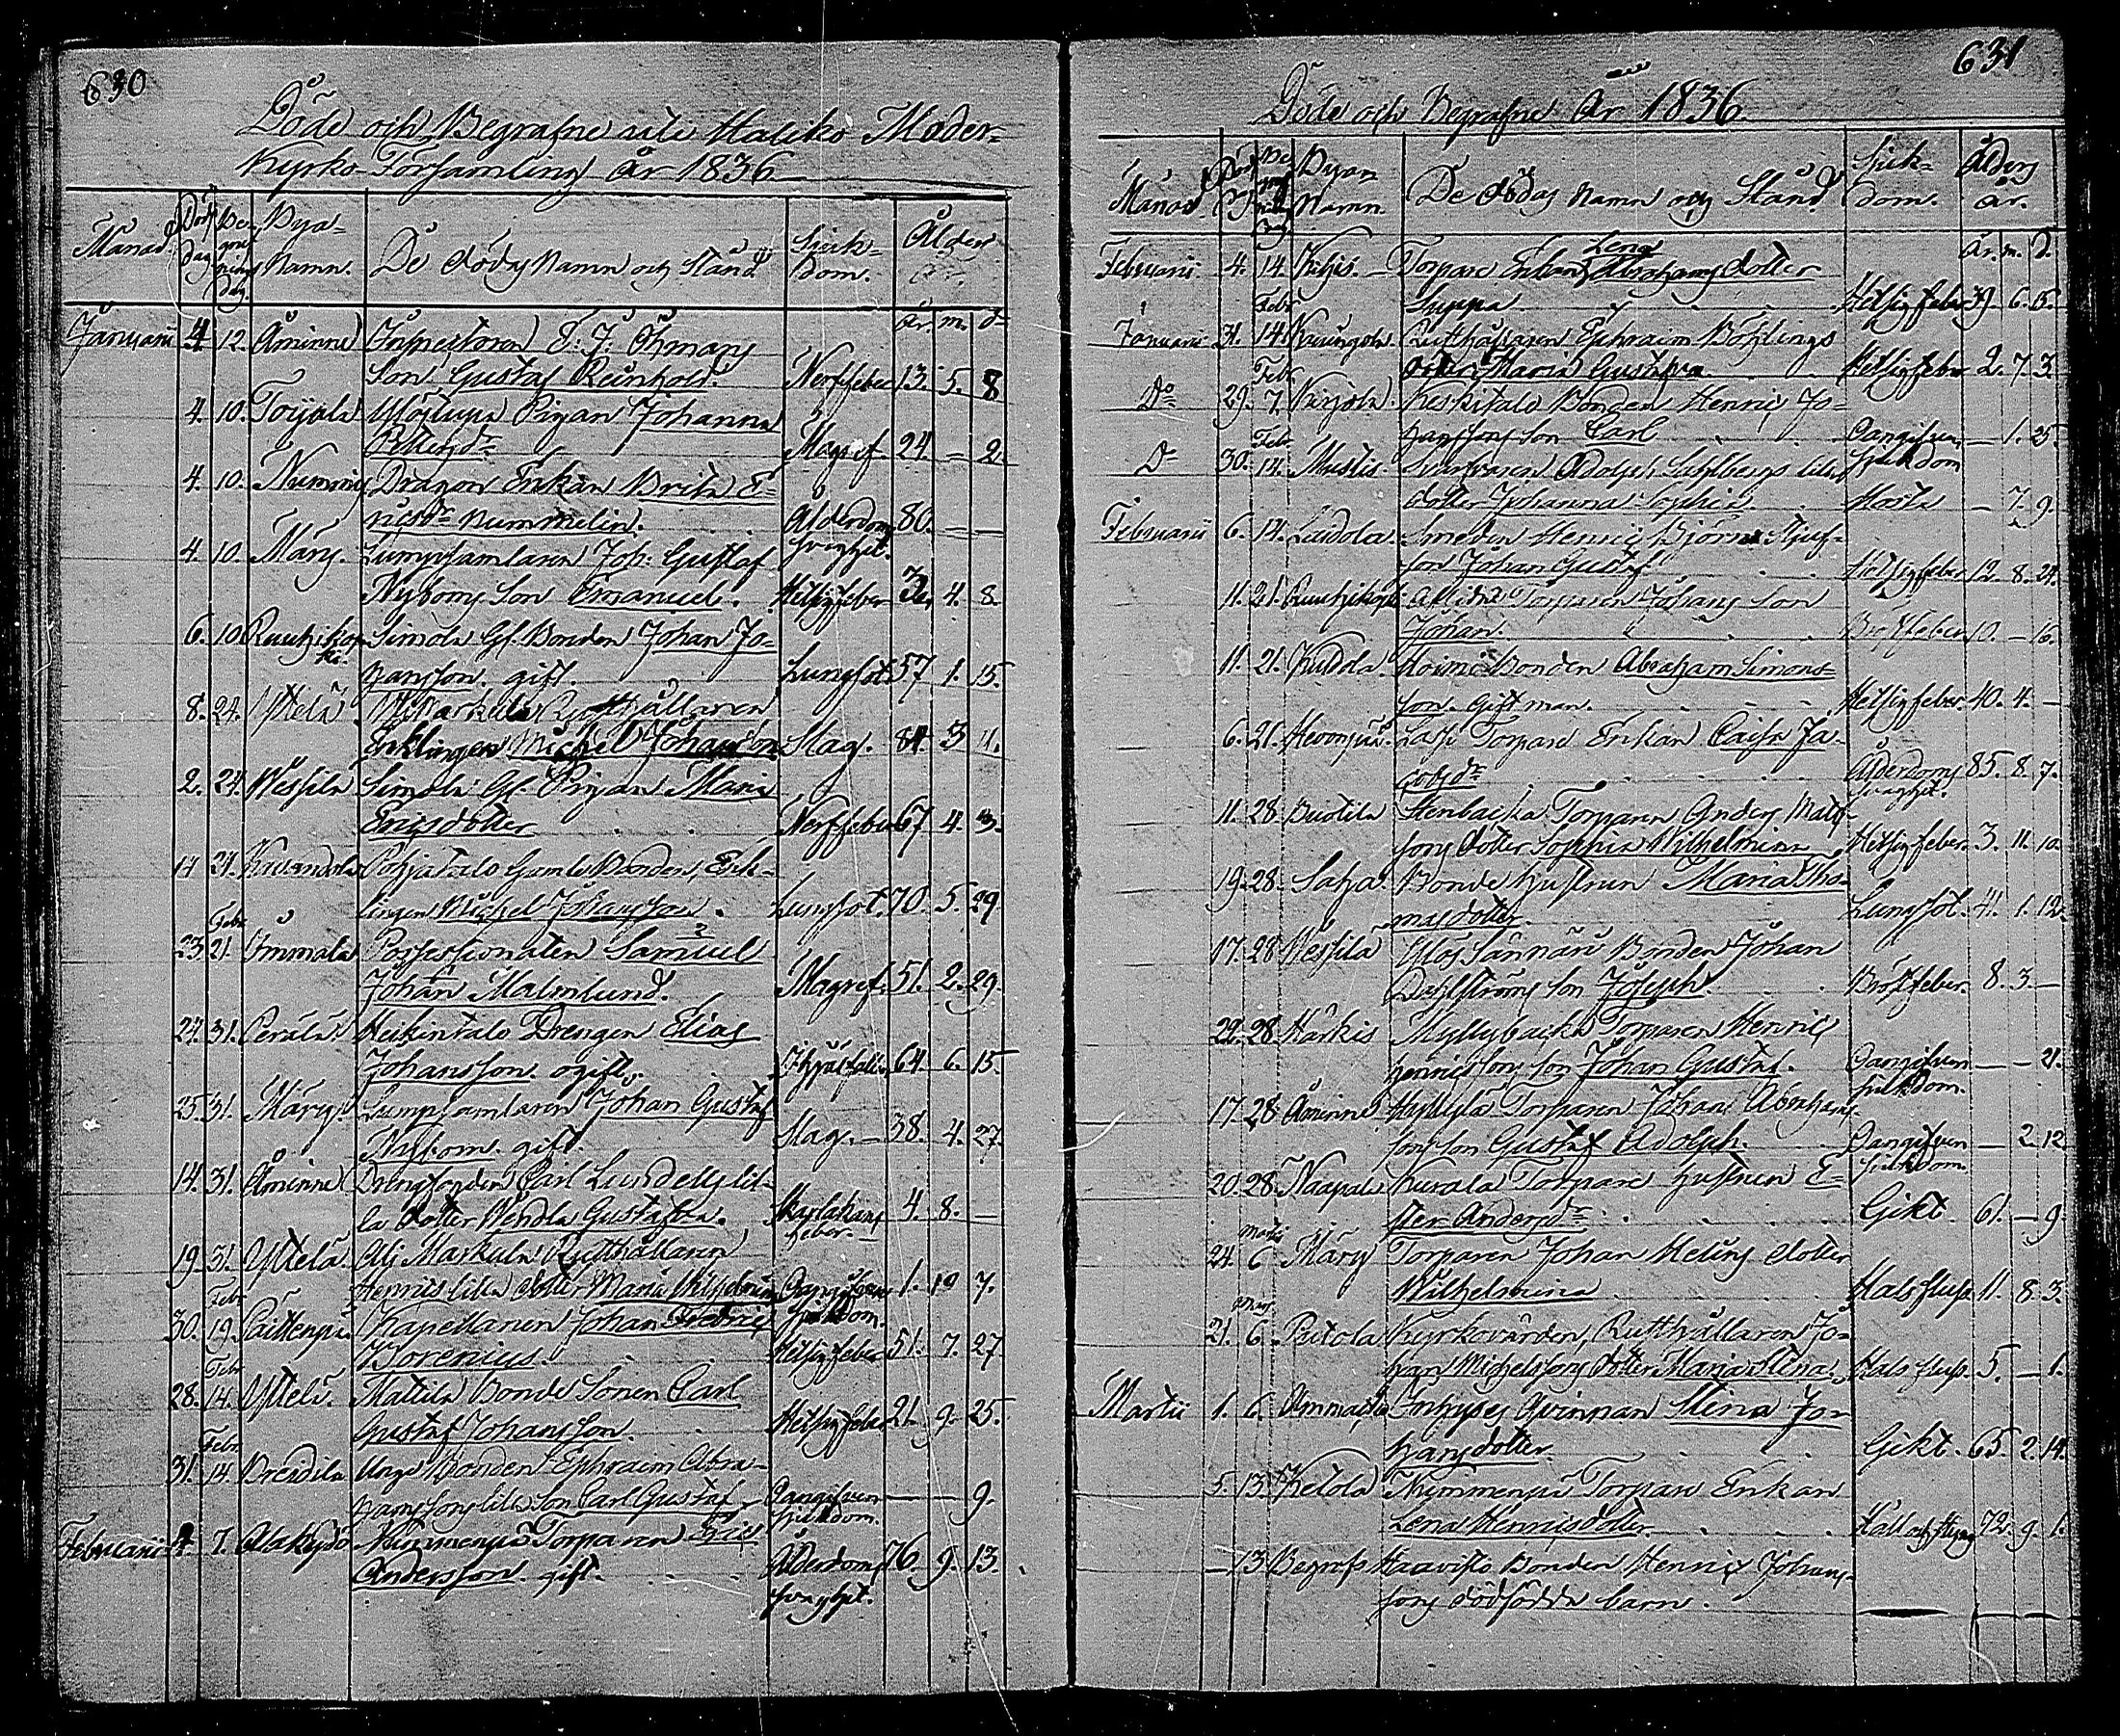 630
Döde och Begrafne uti Haliko Moder-
Kyrko-Församling År 1836
Månad. Död dag Begrafnings dag. Bya-Namn. De dödas Namn och Stånd Sjuk-dom. Ålder
År. m. d.
Januarii 4 12. Åminne Inspectoren F. J. Öhmans
Son Gustaf Reinhold. Nerffeber 13. 5. 8
4. 10. Torjala Pigan Johanna
Mag ref 24 – 2.
4. 10. Nummis Dragon Enkan Brita E-
ricsdr Nummelin. Ålderdoms 80. – –
svaghet.
4. 10. Märy. Lumpsamlaren Joh: Gustaf
Nyboms Son Emanuel. Hetsigfeber 4. 8.
6. 10 Simola Gl. Bonden Johan Jo-
hansson. gift. Lungsot 57 1. 15.
8. 24. Yttelä Rotthållaren
Enklingen Michel Johansson Slag. 84. 3 11.
2. 24. Vessila Simola Gl. Pigan Maria
Ericsdotter Nerffeber 67 4. 3.
17 24. Pohjatalo Gamle Bonden, Enk-
lingen Michel Johansson. Lungsot. 70. 5. 29
Febr.
23 21. Immala Possessionaten Samuel 2
Johan 1 Malmlund. Magref. 51. 2. 29.
24. 31. Perälä Heikintalo Drengen Elias
Johansson ogift. 64. 6. 15.
25. 31. Märy. Lumpsamlaren Johan Gustaf
Nybom. gift. Slag. – 38. 4. 27.
14. 31. Åminne Drengfogden Carl Lundells lil-
la dotter Wendla Gustafva. Skarlakans 4. 8. –
feber. –
19. 31. Yttelä. Ali Markula Rotthållaren
Henrics lilla dotter Maria Wilhelmina Oangifven 1. 10 7.
Febr. sjukdom.
30. 19. Kapellanen Johan Fredric
Borenius. Hetsigfeber 51. 7. 27.
Febr
28. 14. Yttelä. Mattila Bonde Sonen Carl
Gustaf Johansson. Hetsigfeber 21 9. 25.
Febr.
31. 14 Bonden Ephraim Abra-
hamssons lilla son Carl Gustaf Oangifven – – 9.
sjukdom.
Februarii 4. 7. Torparen Eric
Andersson. gift. Ålderdoms 76. 9. 13.
svaghet.
631
Döde och Begrafne År 1836.
Månad Död Begrafnings dag Byan Namn. De dödas Namn och Stånd Sjuk-dom. Ålders år.
År. m. d.
Februarii 4. 14 Torpare Enkan Lena Abrahams dotter
Hetsigfeber 39 6. 5.
Febr
Januarii 31. 14. Rotthållaren Ephraim Böhlings
dotter Maria Gustafva Hetsigfeber 2. 7. 3
Febr
Do 29. 7. Keskitalo Bonden Henric Jo-
hanssons son Carl Oangifven – 1. 25.
Febr. sjukdom
Do 30. 14. Mustis Adolph Sahlbergs lilla
dotter Johanna Sophia. Hosta – 7. 9.
Februarii 6. 14. Laidola Smeden Henric Björns Styf-
son Johan Gustaf Hetsigfeber 12. 8. 24.
11. 21. Torparen Johans Son
Johan. Bröstfeber 10. – 16.
11. 21. Kuddla. Bonden Abraham Simons-
son. Gift man. Hetsigfeber. 40. 4. –
6. 21. Torpare Enkan Caisa Ja-
cobsdr. Ålderdoms 85. 8. 7.
svaghet.
11. 28 Stenbacka Torparen Anders Matts-
sons dotter Sophia Wilhelmina Hetsigfeber. 3. 11. 10.
19. 28. Salja. Bonde hustrun Maria Tho-
masdotter. Lungsot. 41. 1. 12.
17. 28 Vessilä Bonden Johan
Dahlströms son Joseph. Bröstfeber. 8. 3. –
22. 28. Härkis Myllybacka Torparen Henric
Henricssons son Johan Gustaf. Oangifven – – 21.
sjukdom.
17. 28 Åminne Torparen Johan Abrahams-
sons son Gustaf Adolph. Oangifven – 2. 12
sjukdom.
20. 28. Naapala Kurala Torpare hustrun E-
ster Andersdr. Gikt. 61. – 9.
Martii
24. 6 Märy Torparen Johan Helins dotter
Wilhelmina Halsfluss. 11. 8. 3.
Mart.
21. 6. Kyrkovärden, Rotthållaren Jo-
han Michelssons dotter Maria Stina. Halsfluss. 5. – 1.
Martii 1. 6. Inhyses Qvinnan Stina Jo-
hansdotter. Gikt. 65. 2. 14.
5. 13. Ketola Torpare Enkan
Lena Henricsdotter Håll och styng 72. 9. 1.
– 13 Begrofs Haavisto Bonden Henric Johans-
sons dödfödda barn.